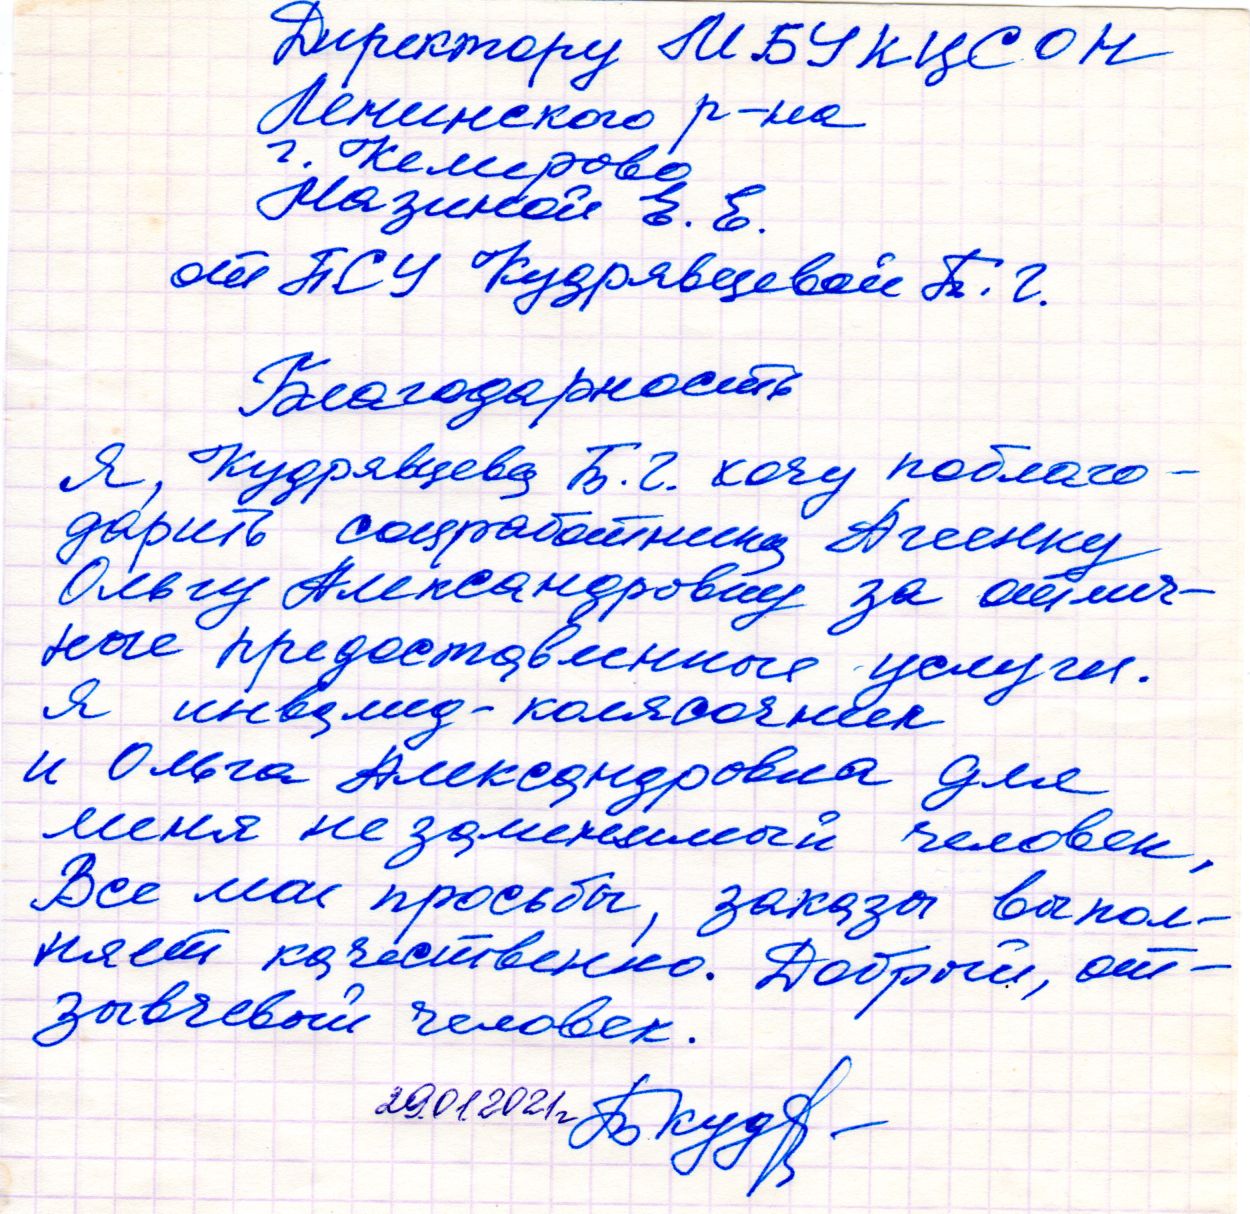 Директору МБУ КЦСОН
Ленинского р-на
г. Кемерово
Мазиной Е. Е.
от ПСУ Кудрявцевой Б. Г.
Благодарность
Я, Кудрявцева Б. Г. хочу поблаго-
дарить соцработника
Ольгу Александровну за отлич-
ные предоставленные услуги.
Я инвалид-колясочник
и Ольга Александровна для
меня незаменимый человек,
Все мои просьбы, заказы выпол-
няет качественно. Добрый, от-
зывчевый человек.
29.01.2021г БКудр